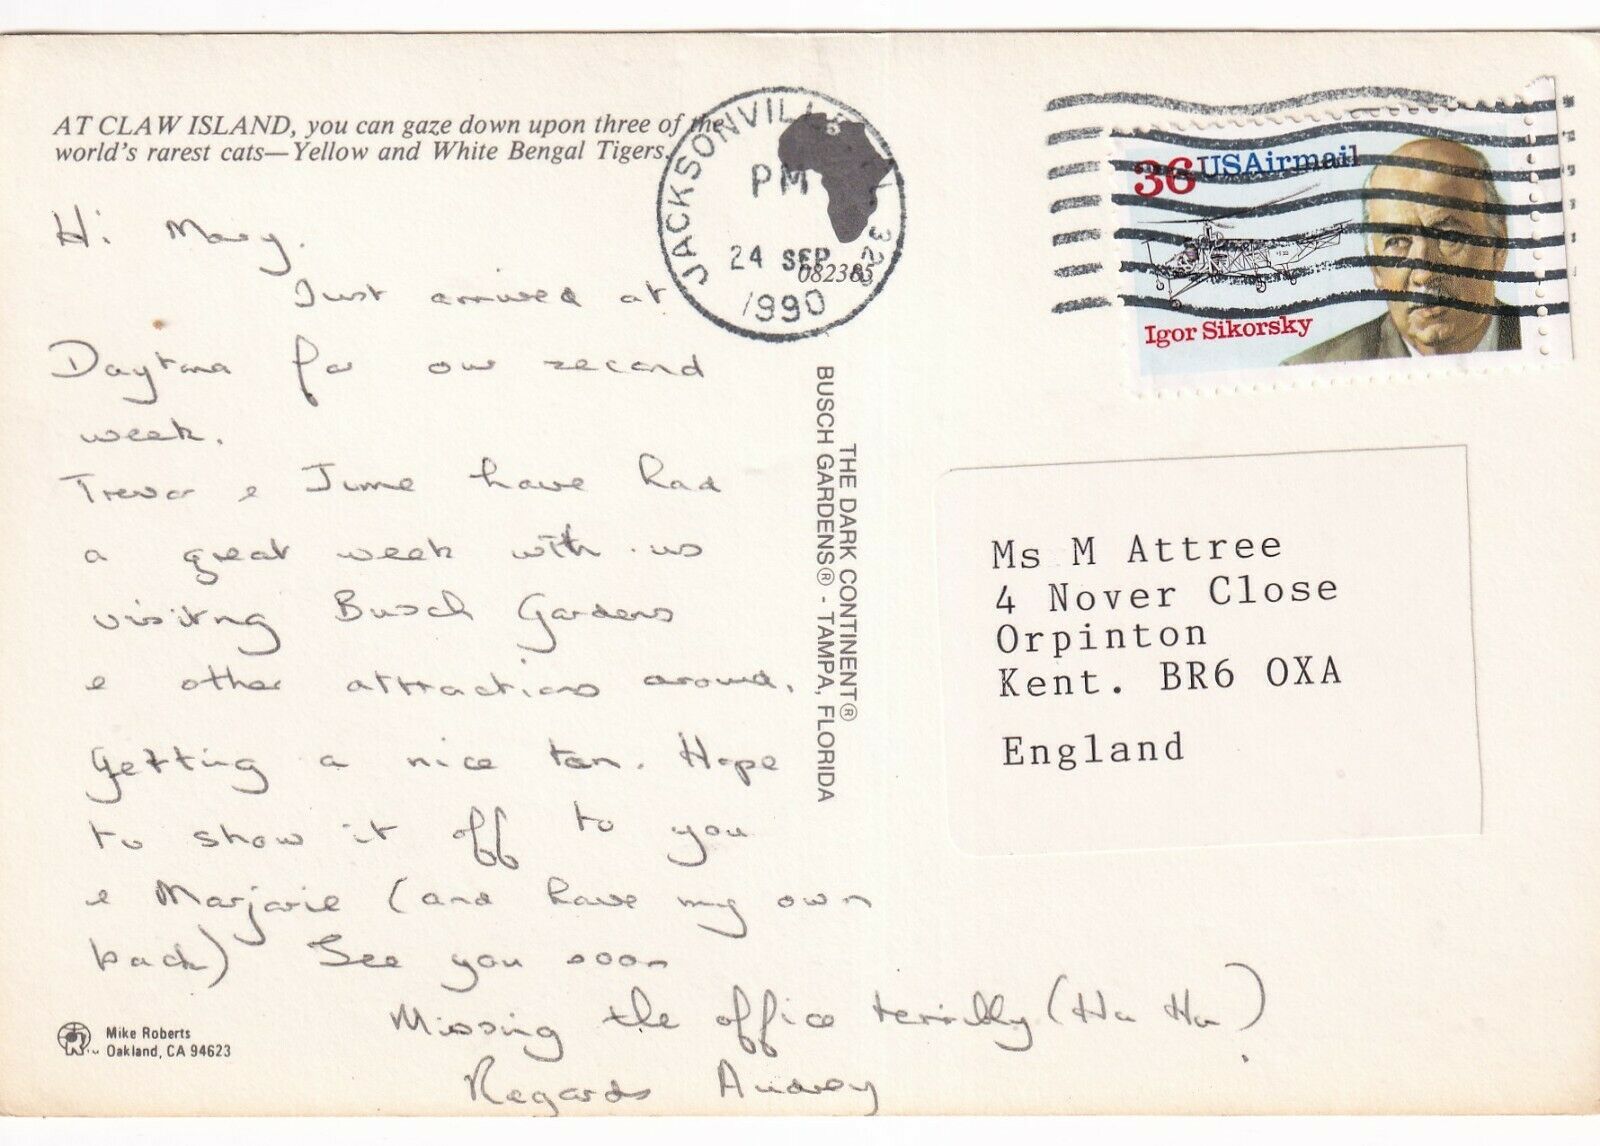 AT CLAW ISLAND, you can gaze down upon three of the
world's rarest cats—Yellow and White Bengal Tigers.
Hi Mary.
Just arrived at
Daytona for our second
week.
Trevor & June have had
a great week with us
visiting Busch Gardens
& other attractions around.
Getting a nice tan. Hope
to show it off to you
& Marjorie (and have my own
back) See you soon
Missing the office terribly (Ha Ha)
Regards Audrey
Mike Roberts
Oakland, CA 94623
JACKSONVILLE
PM
24 SEP
1990
082385
THE DARK CONTINENT®
BUSCH GARDENS® - TAMPA, FLORIDA
36 USAirmail
Igor Sikorsky
Ms M Attree
4 Nover Close
Orpinton
Kent. BR6 OXA
England